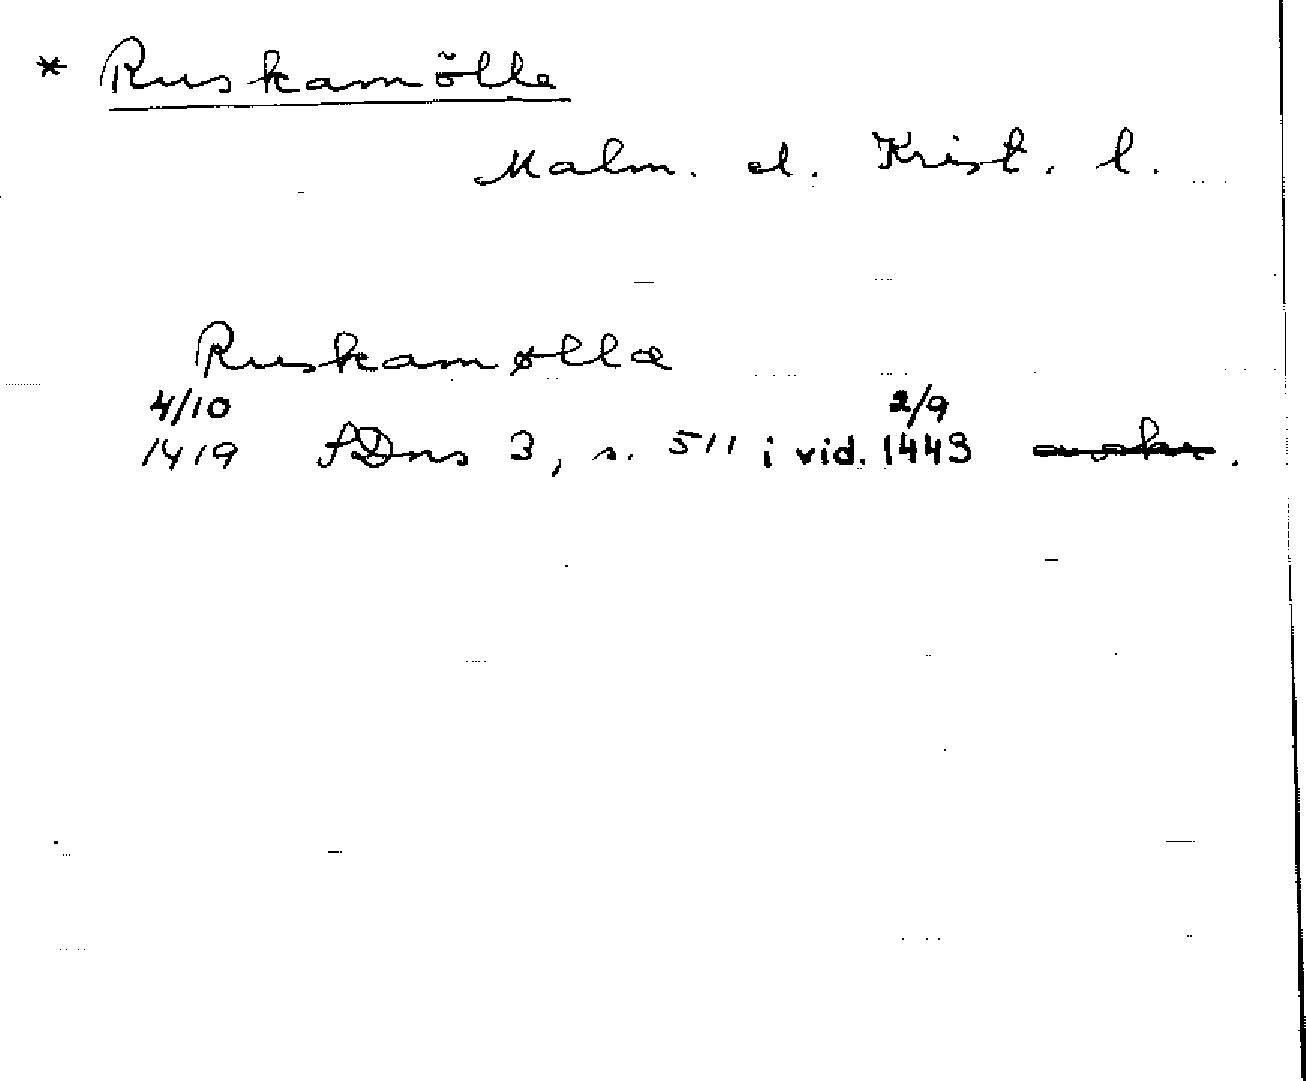 * Ruskamölla
Malm. el. Krist. l.
Ruskamøllæ
4/10 2/9
1419 SDns 3, s. 511 i vid. 1443